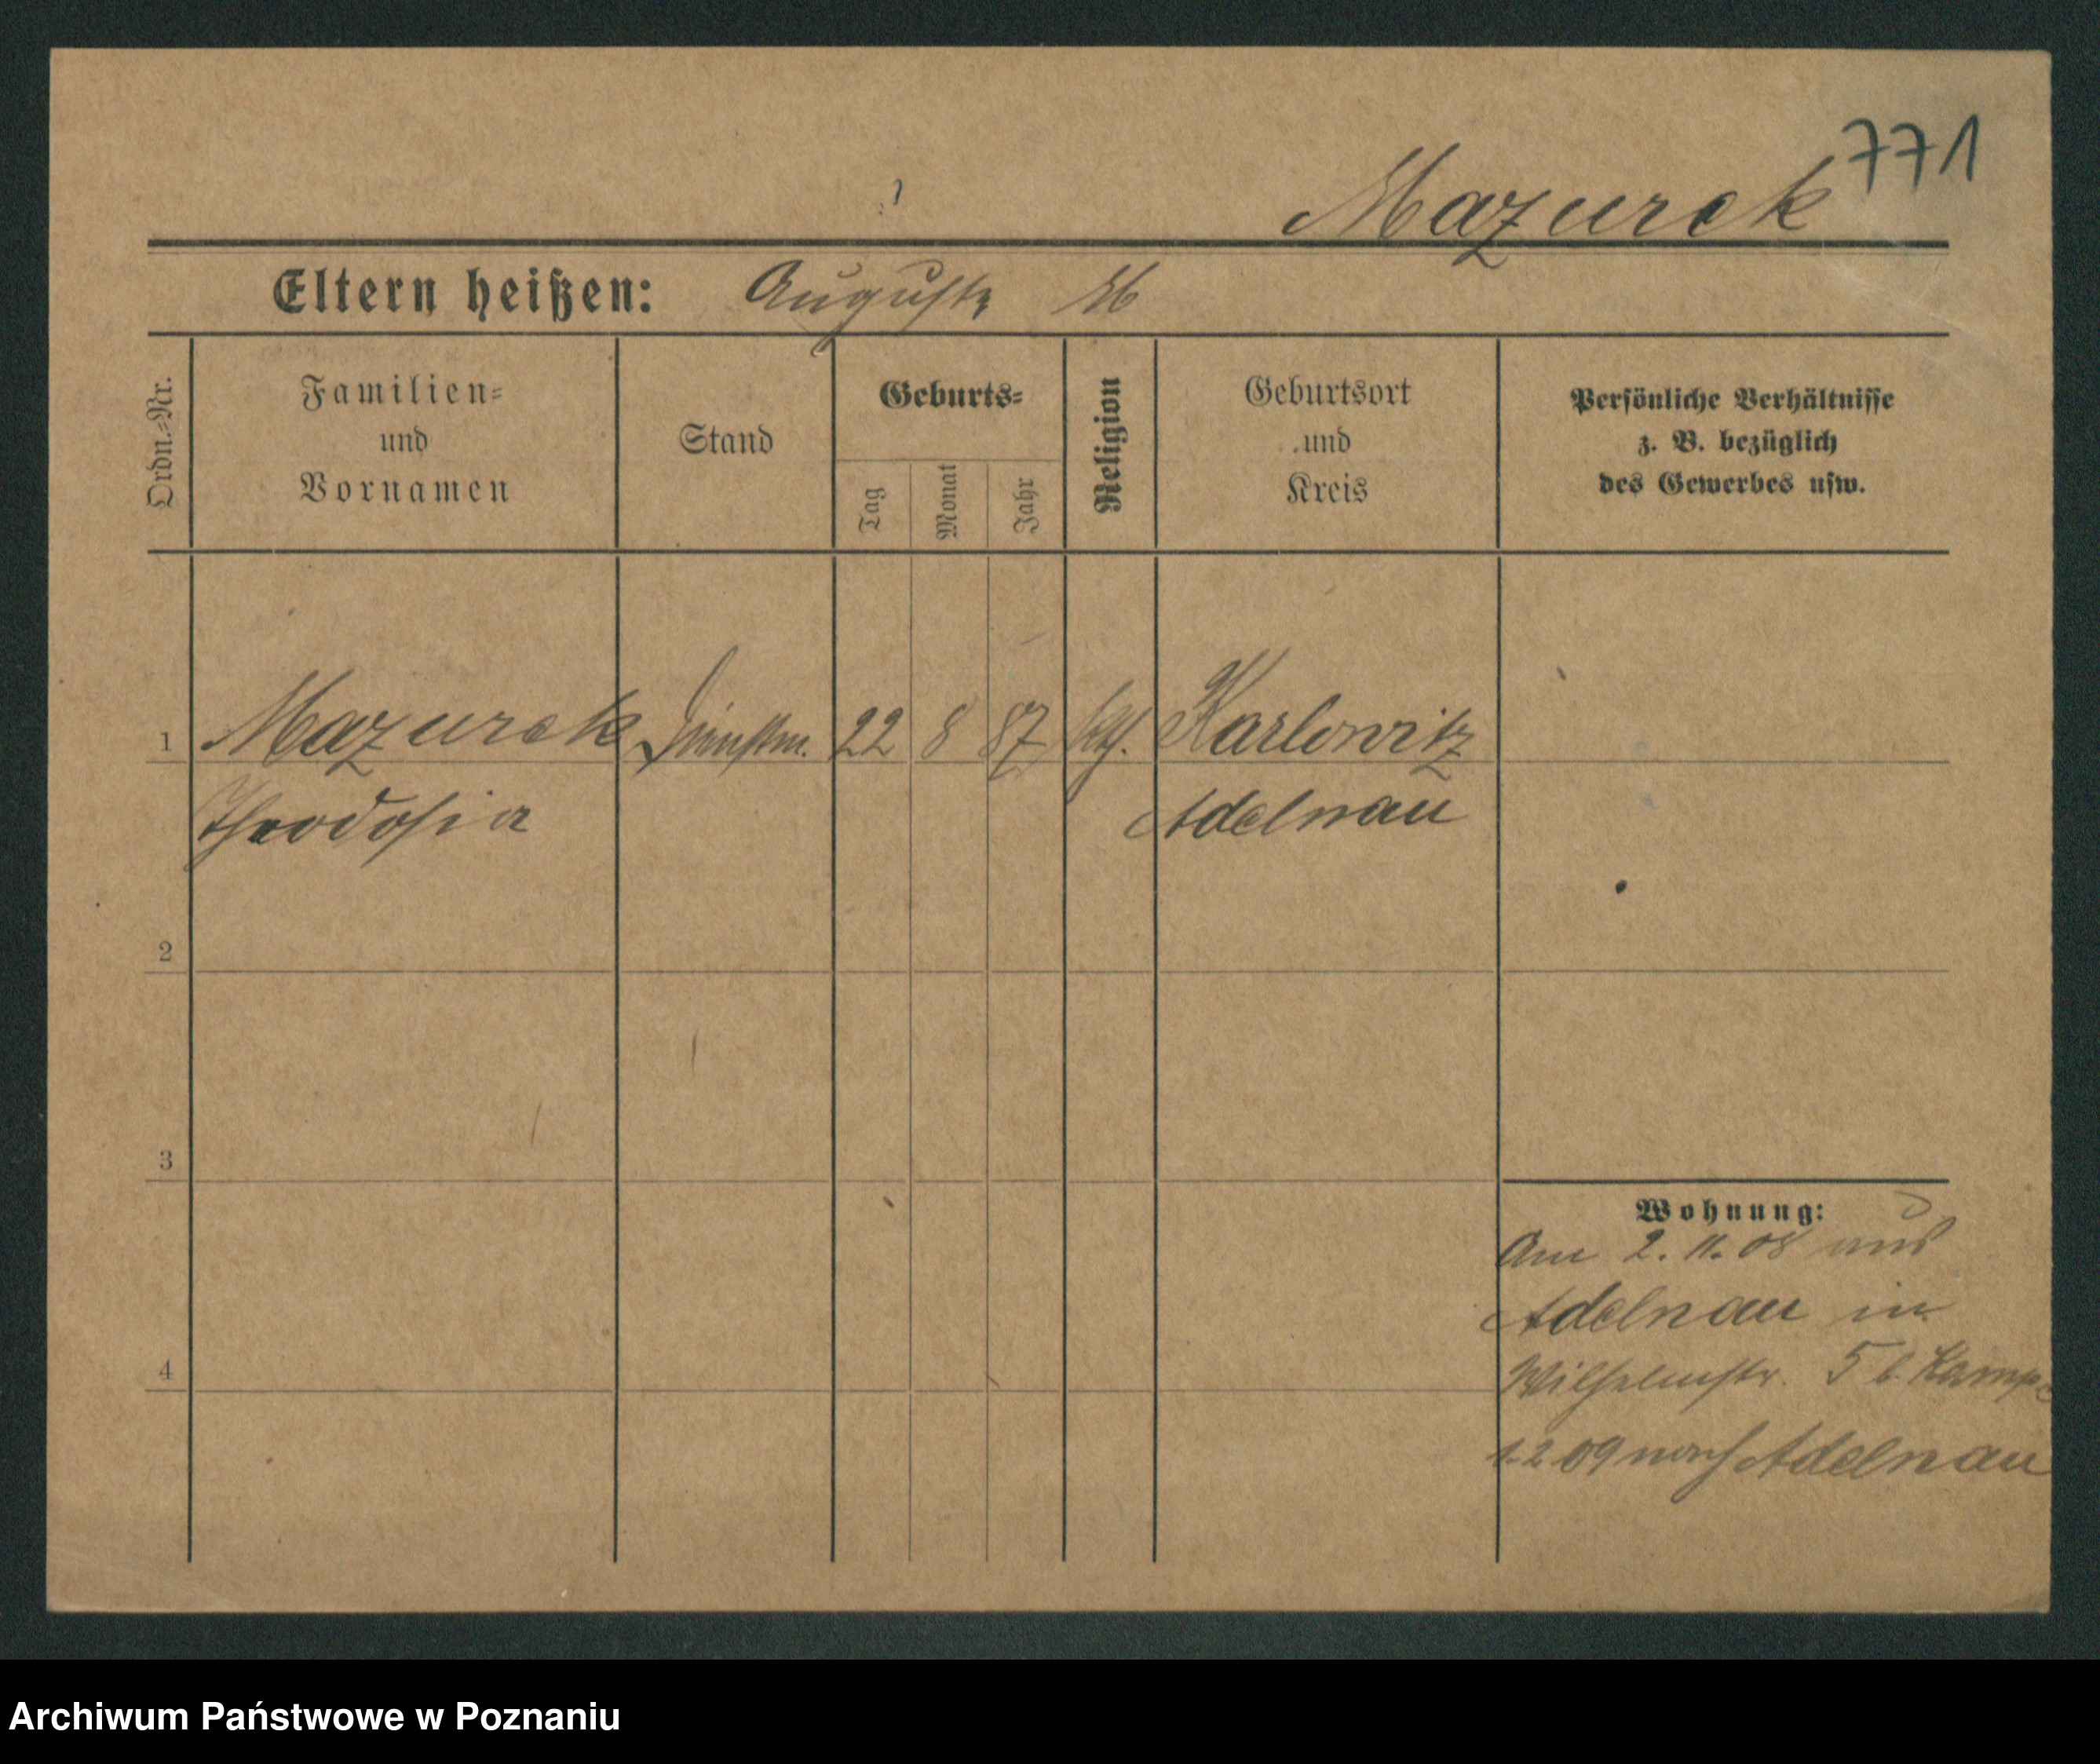 771
Mazurek
Eltern heißen: Auguste M
Ordn.=Nr.
Familien=
und
Vornamen
Stand
Geburts=
Tag
Monat
Jahr
Religion
Geburtsort
und
Kreis
Persönliche Verhältnisse
z. B. bezüglich
des Gewerbes usw.
1 Mazurek Dienstm. 22 8 87 kth. Karlowitz
Theodosia Adelnau
2
3
Wohnung:
Am 2. 11. 08 aus
Adelnau in
4 Wilhelmstr. 5 b. Kampe
1.2 09 nach Adelnau
Archiwum Państwowe w Poznaniu